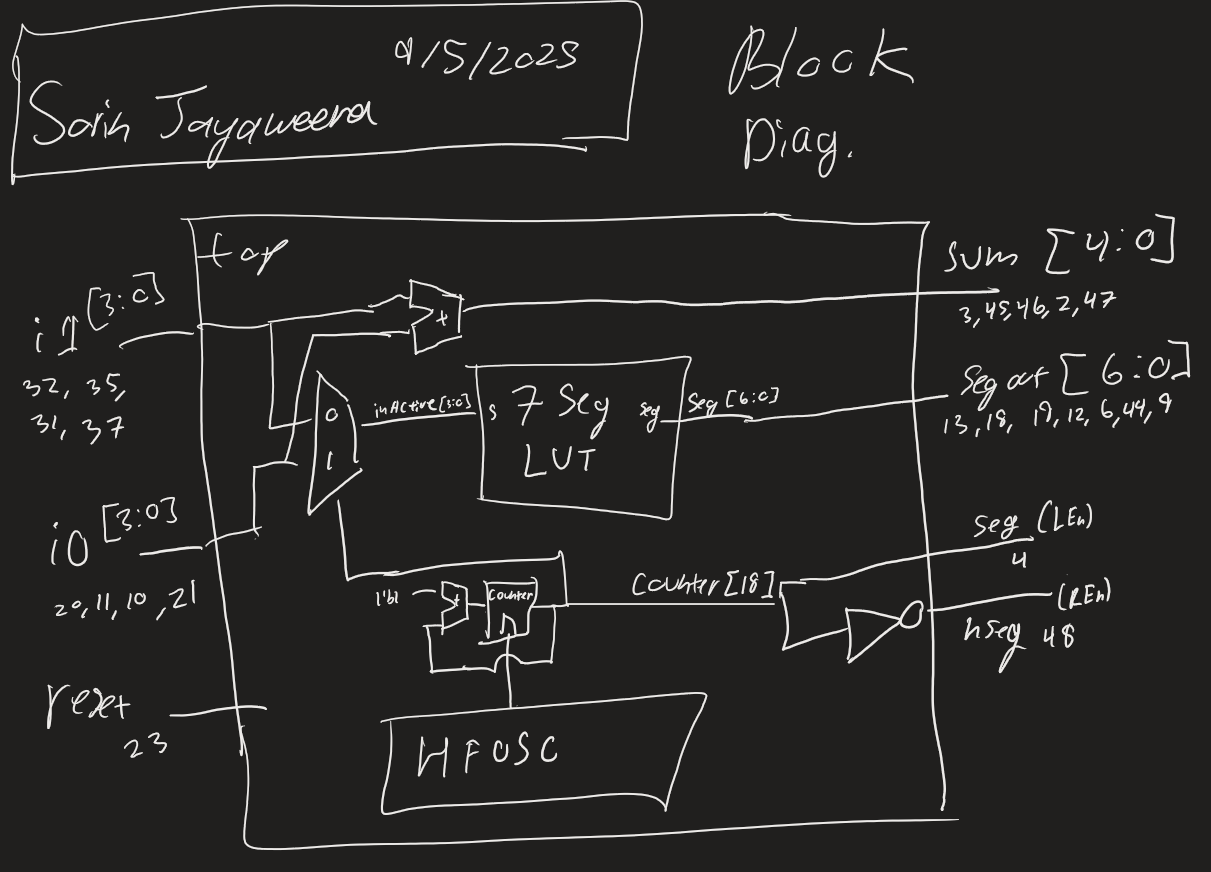 9/5/2025
Sarin Jayaweera
Block
Diag.
top
i1[3:0]
32, 35,
31, 37
i0[3:0]
20, 11, 10, 21
reset
23
+
0
1
inActive[3:0]
s 7 Seg seg
LUT
Seg[6:0]
1'b1
+
Counter
HFOSC
Counter[18]
sum [4:0]
3, 45, 46, 2, 47
Seg out [6:0]
13, 18, 19, 12, 6, 44, 9
Seg (LEn)
4
(REn)
nseg 48